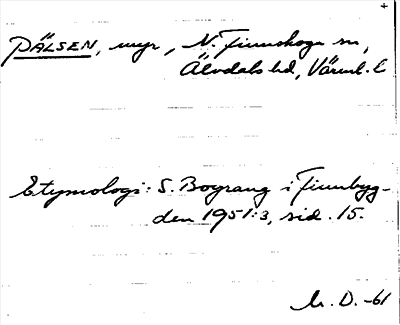 PÄLSEN, myr, N. Finnskoga sn,
Älvdals hd, Värml. l
Etymologi: S. Boyrang i Finnbyg-
den 1951:3, sid. 15.
M. D. -61